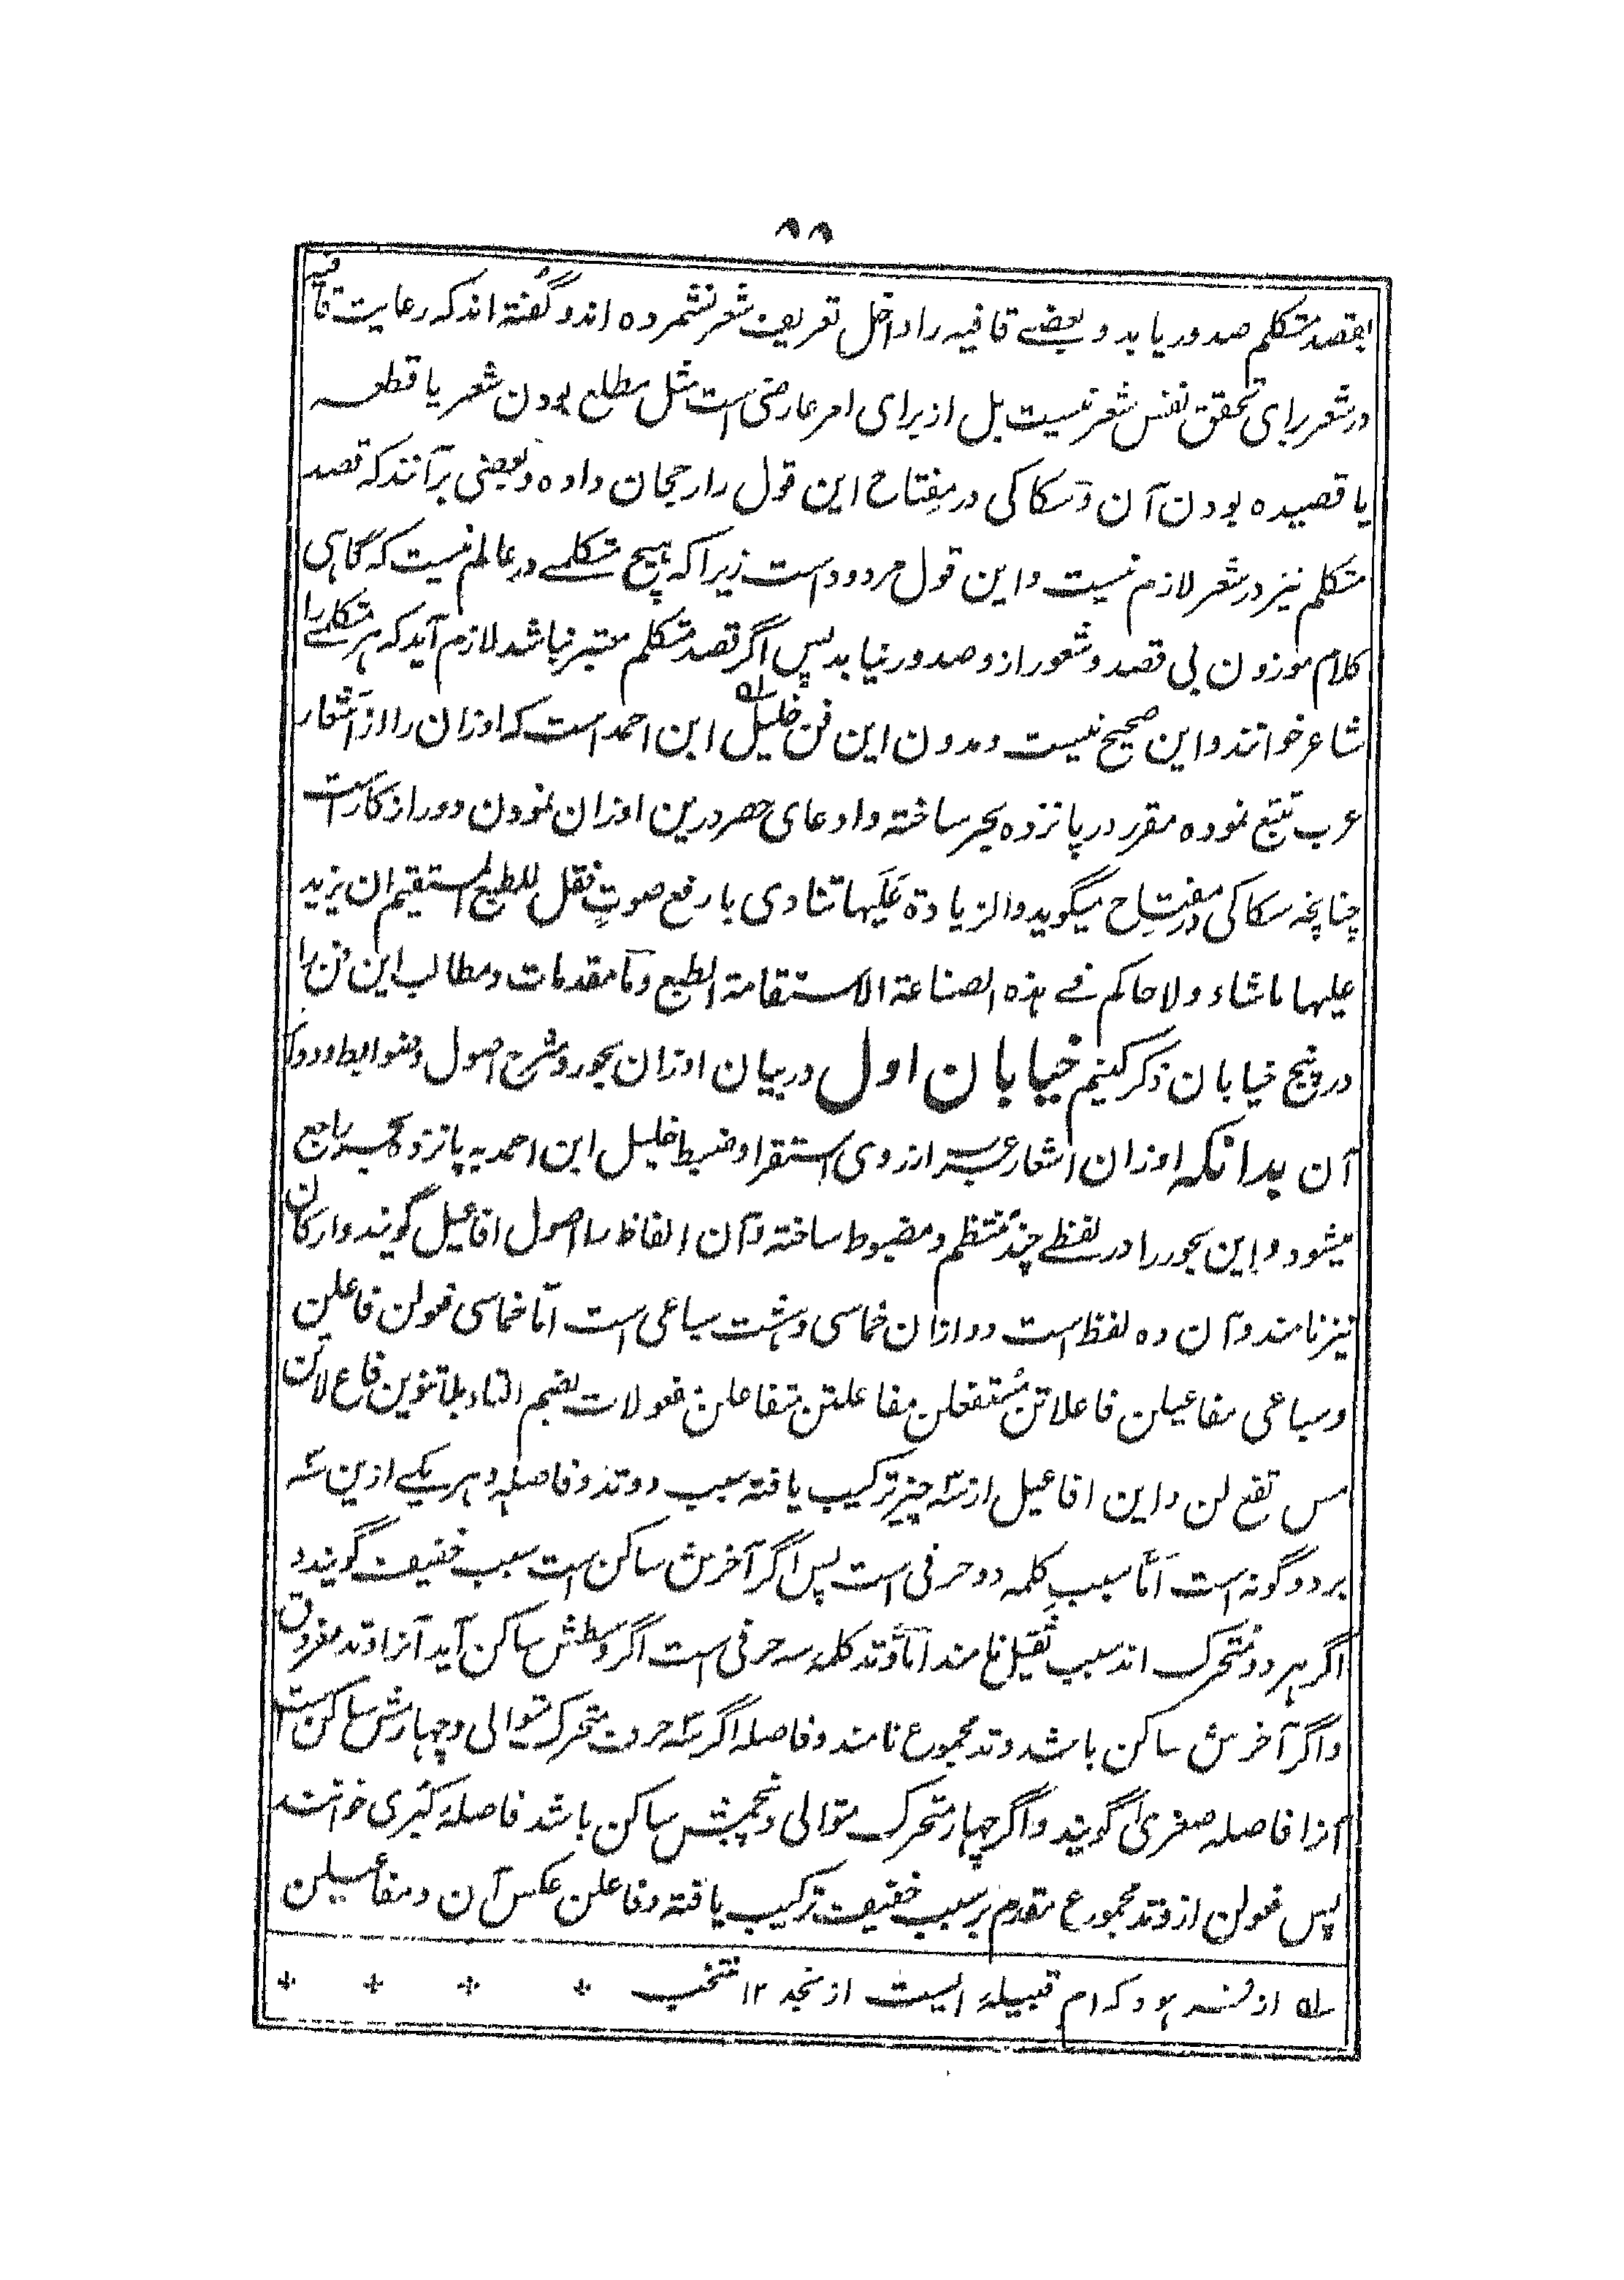 ۸۸
بقصد متکلم صدور یابد و بعضے قافیہ را داخل تعریف شعر نشمردہ اند و گفتہ اند کہ رعایت قافیہ
در شعر برای تحقق نفس شعر نیست بل از برای امر عارضی است مثل مطلع بودن شعر یا قطعہ
یا قصیدہ بودن آن و سکاکی در مفتاح این قول را رجحان دادہ و بعضی برآنند کہ قصد
متکلم نیز در شعر لازم نیست و این قول مردود است زیرا کہ ہیچ متکلمے در عالم نیست کہ گاہی
کلام موزون بی قصد و شعور ازو صدور نیابد پس اگر قصد متکلم معتبر نباشد لازم آید کہ ہر متکلمے را
شاعر خوانند و این صحیح نیست و مدون این فن خلیل ابن احمد است کہ اوزان را از اشعار
عرب تتبع نمودہ مقرر در پانزدہ بحر ساختہ و ادعای حصر درین اوزان نمودن دور از کار است
چنانچہ سکاکی در مفتاح میگوید والزیادة علیہا تنادی بارفع صوت فقل للطبع المستقیم ان یزید
علیہا ماشاء ولا حاکم فے ہذہ الصناعة الا استقامة الطبع و ما مقدمات و مطالب این فن را
در پنج خیابان ذکر کنیم خیابان اول در بیان اوزان بحور و شرح اصول و ضوابط و دوائر
آن بدانکہ اوزان اشعار عرب از روی استقرا و ضبط خلیل ابن احمد بہ پانزدہ بحر راجع
میشود و این بحور را در لفظے چند منتظم و مضبوط ساختہ و آن الفاظ را اصول افاعیل گویند و ارکان
نیز نامند و آن دہ لفظ است دو ازان خماسی و ہشت سباعی است اما خماسی فعولن فاعلن
و سباعی مفاعیلن فاعلاتن مُستفعلن مفاعلتن متفاعلن مفعولات بضم التاء بلا تنوین فاع لاتن
مس تفع لن و این افاعیل از سہ چیز ترکیب یافتہ سبب و وتد و فاصلہ و ہر یکے ازین سہ
بر دو گونہ است اما سبب کلمہ دو حرفی است پس اگر آخرش ساکن است سبب خفیف گویند و
اگر ہر دو متحرک اند سبب ثقیل نامند اما وتد کلمۂ سہ حرفی است اگر وسطش ساکن آید آنرا وتد مفروق
و اگر آخرش ساکن باشد وتد مجموع نامند و فاصلہ اگر سہ حرف متحرک متوالی و چہارمش ساکن است
آنرا فاصلہ صغریٰ گویند و اگر چہار متحرک متوالی و پنجمیش ساکن باشد فاصلۂ کبری خوانند
پس فعولن از وتد مجموع مقدم بر سبب خفیف ترکیب یافتہ و فاعلن عکس آن و مفاعیلن
لہ از ہود کدام قبیلۂ ایست از نجد ۱۲ منتخب